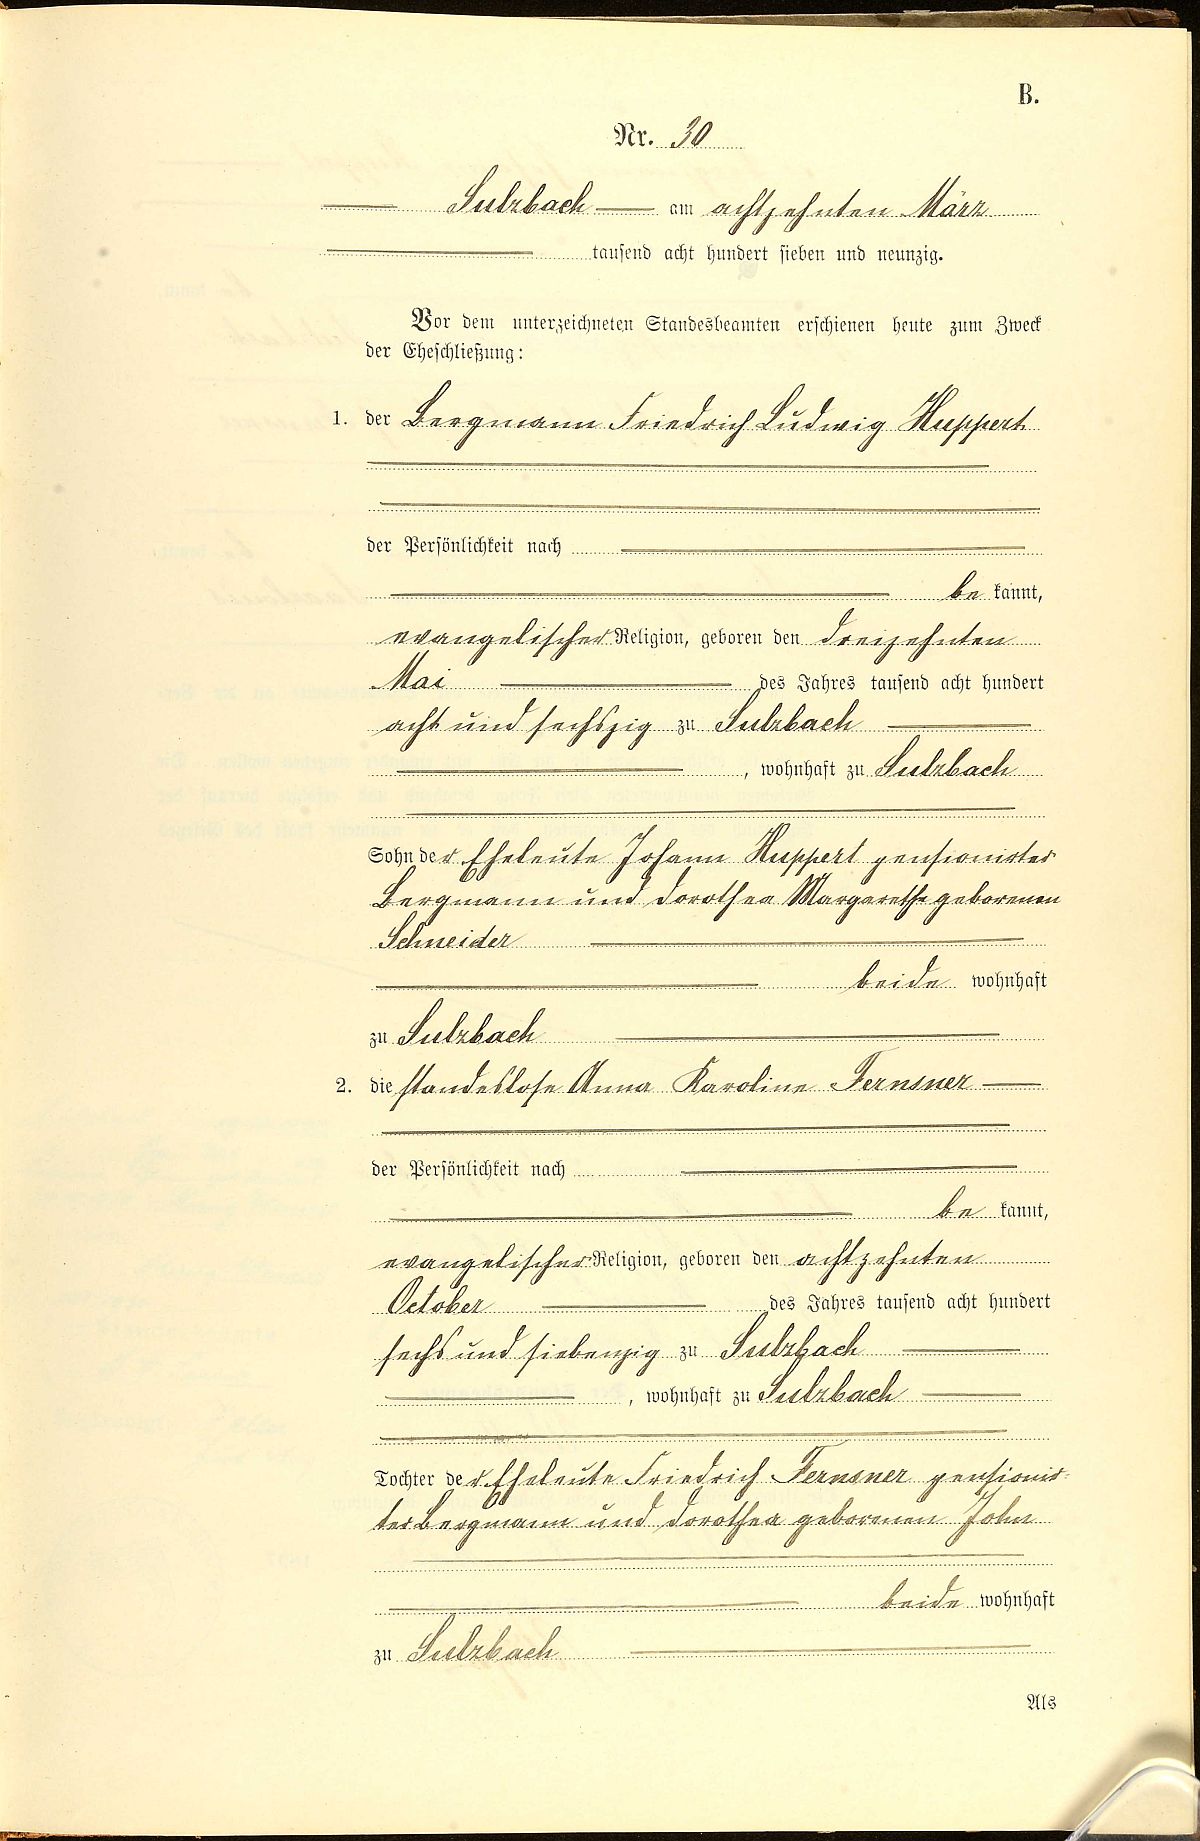 B.
Nr. 30
Sulzbach am achtzehnten März
tausend acht hundert sieben und neunzig.
Vor dem unterzeichneten Standesbeamten erschienen heute zum Zweck
der Eheschließung:
1. der Bergmann Friedrich Ludwig Huppert
der Persönlichkeit nach
be kannt,
evangelischer Religion, geboren den dreizehnten
Mai des Jahres tausend acht hundert
acht und sechszig zu Sulzbach
, wohnhaft zu Sulzbach
Sohn der Eheleute Johann Huppert pensionirter
Bergmann und Dorothea Margarethe geborenen
Schneider
beide wohnhaft
zu Sulzbach
2. die standeslose Anna Karoline Fernsner
der Persönlichkeit nach
be kannt,
evangelischer Religion, geboren den achtzehnten
October des Jahres tausend acht hundert
sechs und siebenzig zu Sulzbach
, wohnhaft zu Sulzbach
Tochter der Eheleute Friedrich Fernsner pensionir-
ter Bergmann und Dorothea geborenen John
beide wohnhaft
zu Sulzbach
Als